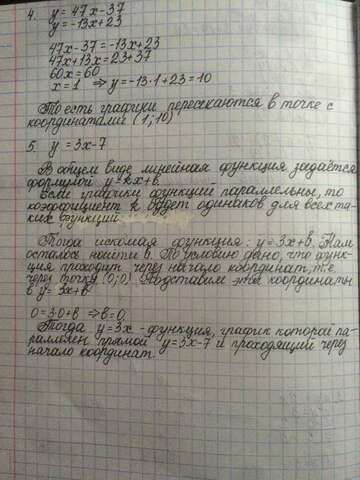 4. y = 47x - 37
y = -13x + 23
47x - 37 = -13x + 23
47x + 13x = 23 + 37
60x = 60
x = 1 ⇒ y = -13·1 + 23 = 10
То есть графики пересекаются в точке с
координатами (1; 10)
5. y = 3x - 7
В общем виде линейная функция задаётся
формулой y = kx + b.
Если графики функций параллельны, то
коэффициент k будет одинаков для всех та-
ких функций.
Тогда искомая функция: y = 3x + b. Нам
осталось найти b. По условию дано, что функ-
ция проходит через начало координат, т.е.
через точку (0; 0). Подставим эти координаты
в y = 3x + b
0 = 3·0 + b ⇒ b = 0
Тогда y = 3x - функция, график которой па-
раллелен прямой y = 3x - 7 и проходящий через
начало координат.